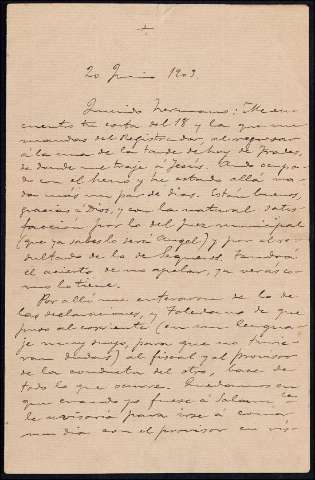 +
20 Junio 1903.
Querido hermano: Me en-
cuentro tu carta del 18 y la que me
mandas del Registrador, al regresar
á la una de la tarde de hoy de Frades,
de donde me traje á Jesús. Ando ocupa-
do en el heno y he estado allá na-
da más un par de días. Están buenos,
gracias á Dios, y con la natural satis-
facción por lo del juez municipal
(que ya sabes lo será Angel) y por el re-
sultado de lo de Sequeros. Tendrá
el acierto, de no apelar, ya verás co-
mo lo tiene.
Por allí me enteraron de lo de
las declaraciones, y Toledano de que
puso al corriente (en un lengua-
je muy suyo, para que no tuvie-
ran dudas) al fiscal y al provisor
de la conducta del otro, base de
todo lo que ocurre. Quedamos en
que cuando yo fuese á Salamca
le avisaría para irse á comer
un día con el provisor en vis-